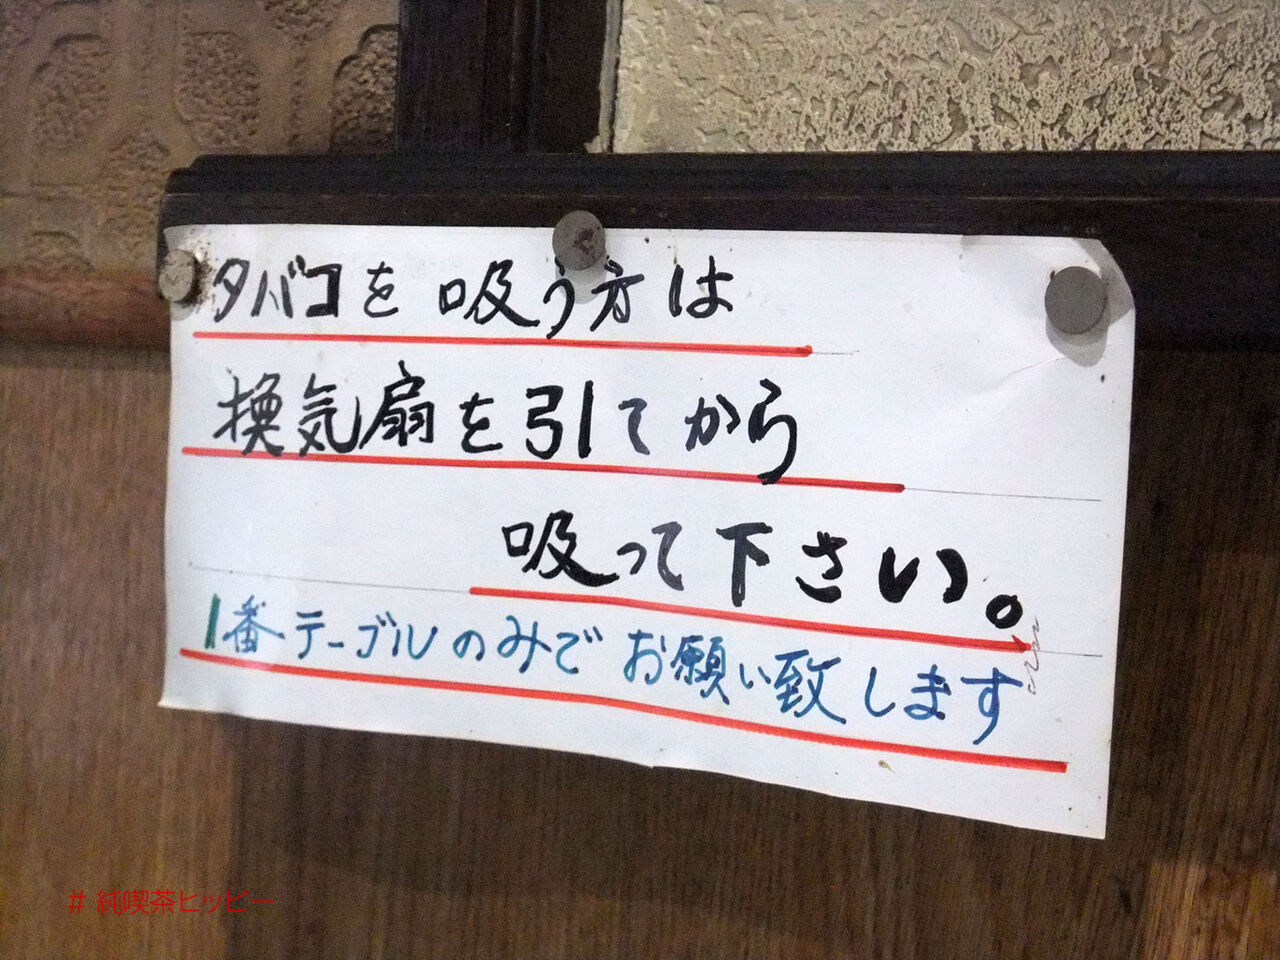 タバコを吸う方は
換気扇を引てから
吸って下さい。
1番テーブルのみでお願い致します
# 純喫茶ヒッピー